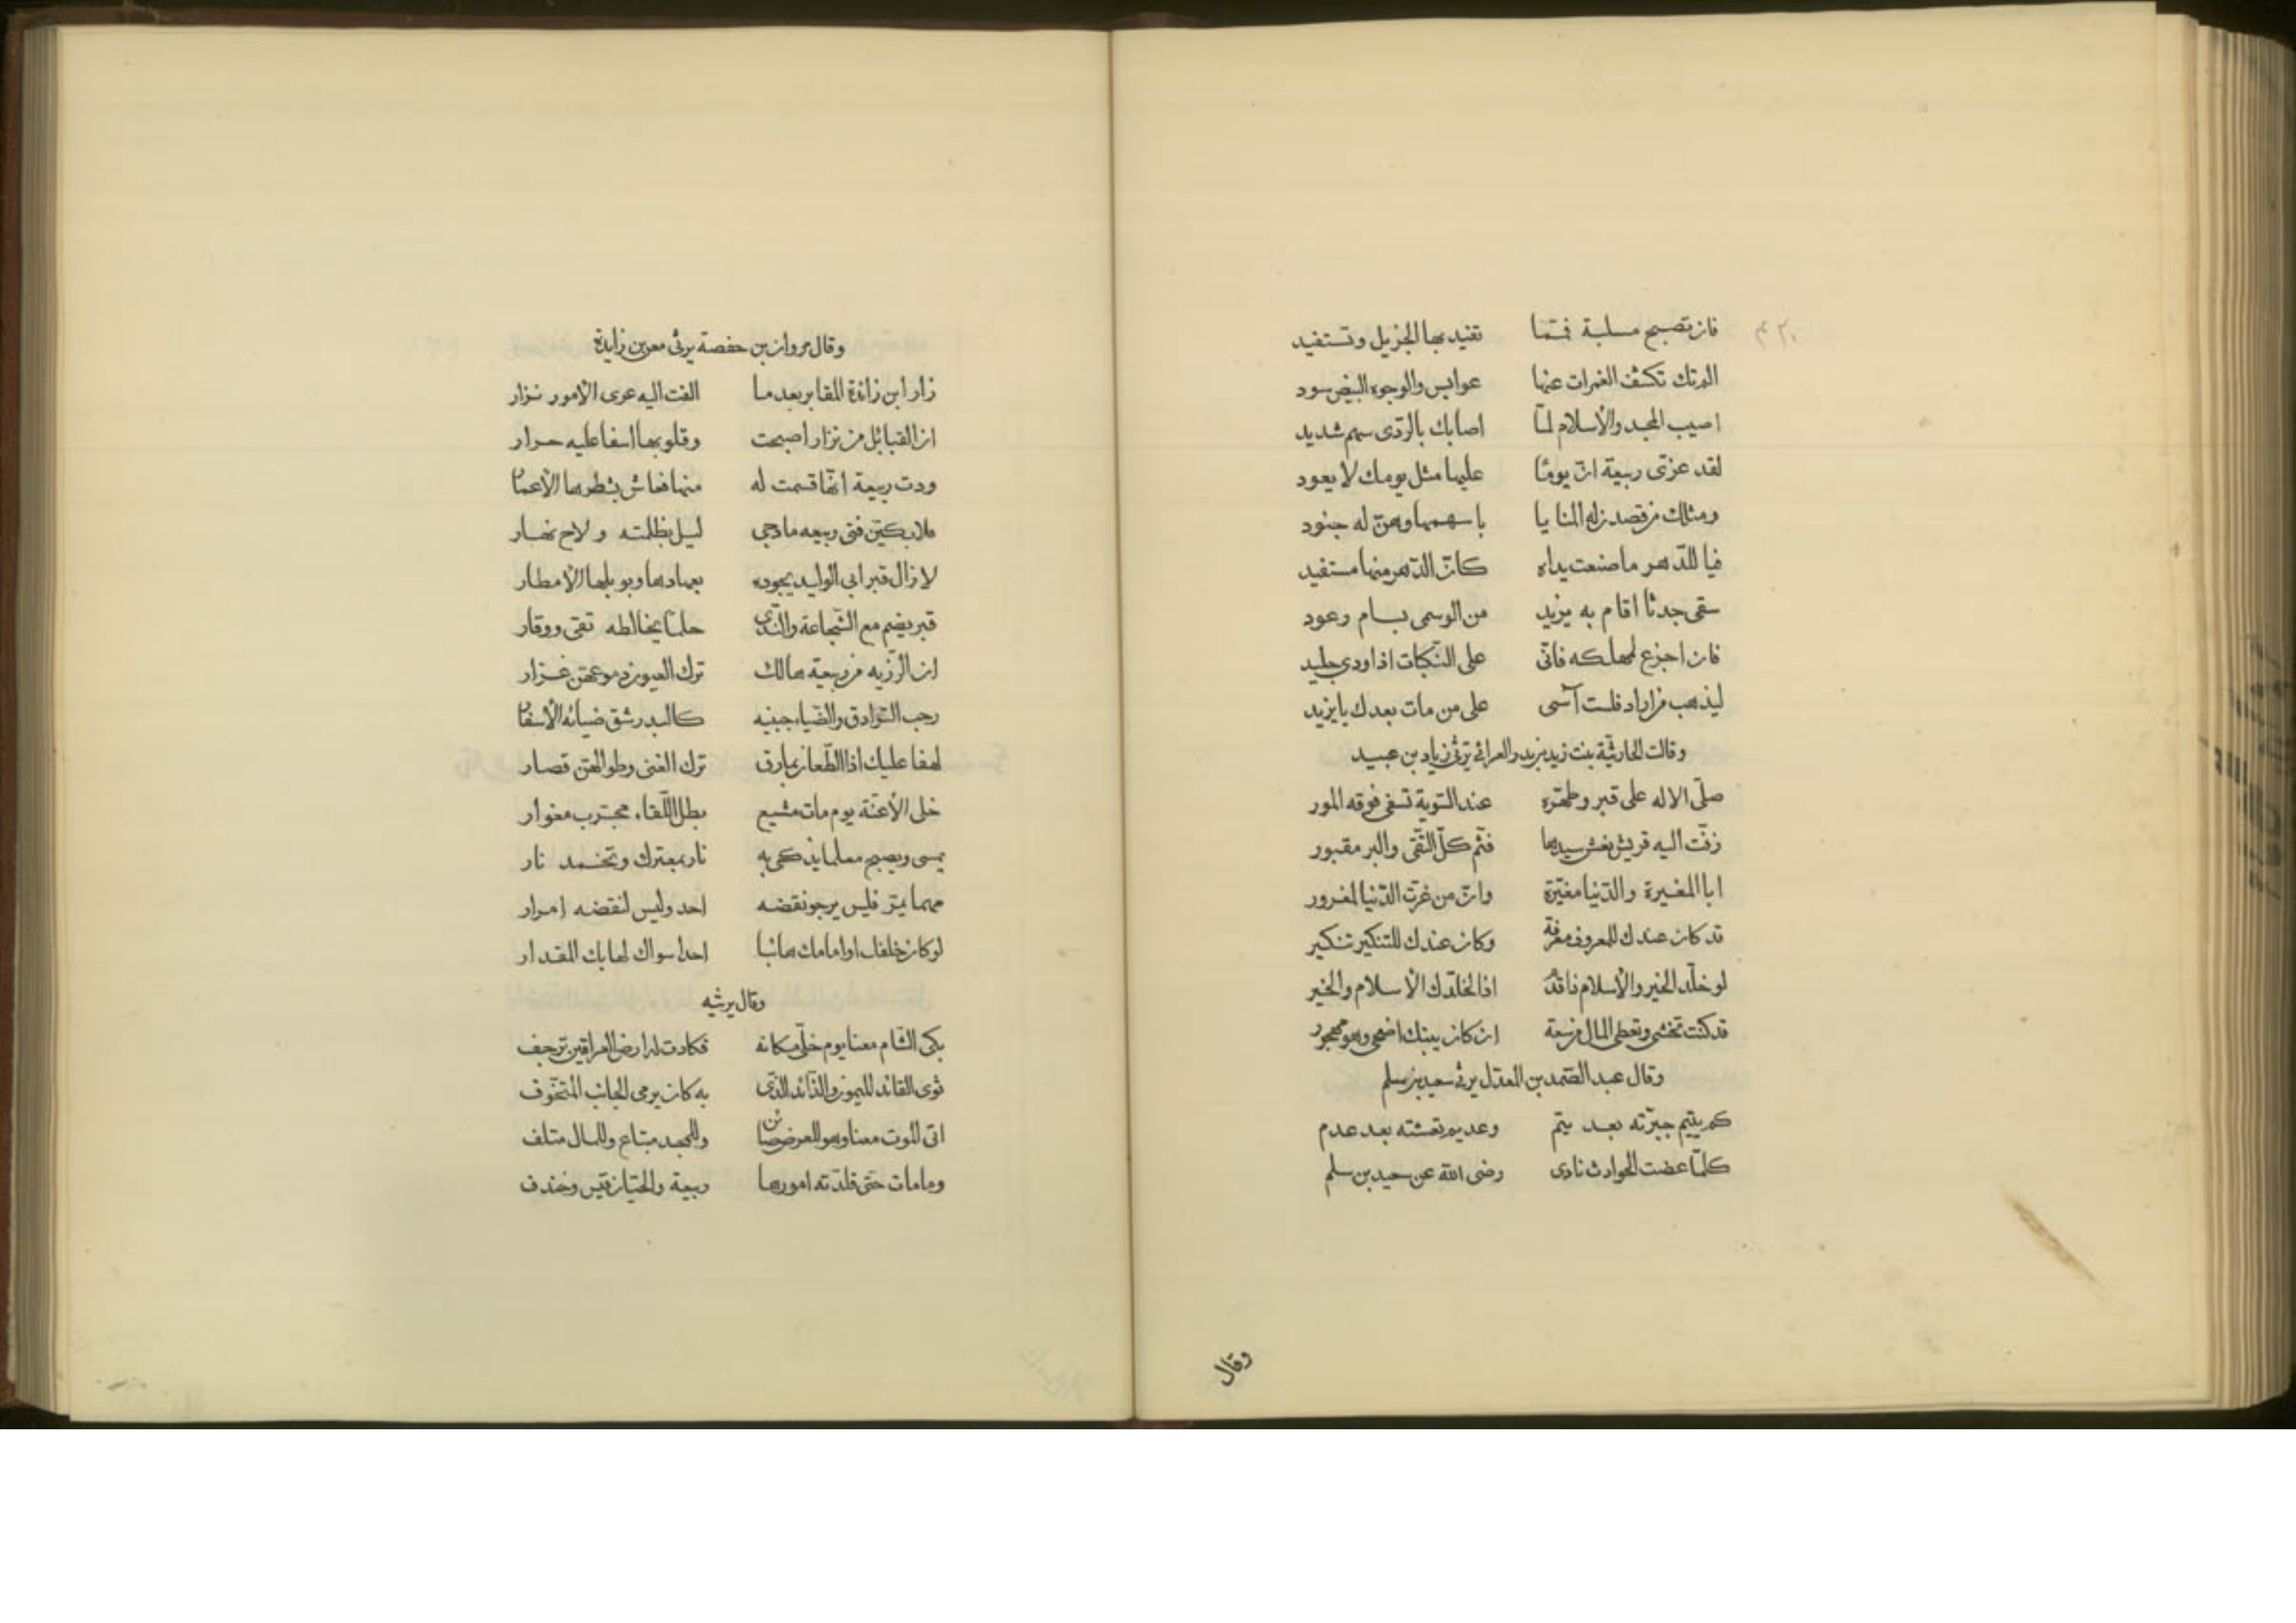 فان تصبح مسلبة فمما تفيد بها الجزيل وتستفيد
الم تك تكشف الغمرات عنها عوابس والوجوه البيض سود
اصيب المجد والأسلام لمّا اصابك بالرّدى سهم شديد
لقد عزّى ربيعة انّ يومًا عليها مثل يومك لا يعود
ومثلك من قصدن له المنايا باسهمها وهنّ له جنود
فيا للدّهر ما صنعت يداه كانّ الدّهر منها مستفيد
سقى جدثا اقام به يزيد من الوسمى بسام رعود
فان اجزع لمهلكه فانّى على النّكبات اذا ودى جليد
ليذهب من اراد فلست آسى على من مات بعدك يا يزيد
وقالت الحارثيّة بنت زيد بن بدر العرانى ترثى زياد بن عبيد
صلّى الاله على قبر وطهّره عند الثّوية تسفى فوقه المور
زفّت اليه قريش نعش سيدها فثم كلّ التّقى والبر مقبور
ابا المغيرة والدّنيا مغيّرة وانّ من غرّت الدّنيا لمغرور
قد كان عندك للمعروف معرفة وكان عندك للتنكير تنكير
لو خلّد الخير والأسلام ذا قدم اذا لخلّدك الأسلام والخير
قد كنت تخشى وتعطى المال من سعة ان كان بيتك اضحى وهو مهجور
وقال عبد الصّمد بن المعذّل يرثى سعيد بن سلم
كم يتيم جبرته بعد يتم وعديم نعشته بعد عدم
كلّما عضت الحوادث نادى رضى الله عن سعيد بن سلم
وقال
وقال مروان بن حفصة يرثى معن بن زايدة
زار ابن زائدة المقابر بعد ما القت اليه عرى الأمور نزار
ان القبائل من نزار اصبحت وقلوبها اسفا عليه حرار
ودت ربيعة انّها قسمت له منها فعاش بشطرها الأعمار
فلابكينّ فتى ربيعه ما دجى ليل بظلمته ولاح نهار
لا زال قبر ابى الوليد يجوده بعهادها وبوبلها الأمطار
قبر يضم مع الشّجاعة والنّدى حلمًا يخالطه تقى ووقار
ان الرّزيه من ربيعة هالك ترك العيون دموعهن غزار
رحب السّرادق والضّياء جبينه كالبدر شق ضيائه الأسفار
لهفا عليك اذا الطّعان بمازق ترك القنى وطوالهنّ قصار
خلى الأعنّة يوم مات مشيع بطل اللّقاء مجرّب مغوار
يمسى ويصبح معلما يذكى به نار بمعترك وتخمد نار
مهما يمرّ فليس يرجو نقضه احد وليس لنقضه امرار
لو كان خلفك او امامك هائبا احدا سواك لهابك المقدار
وقال يرثيه
بكى الشّام معنا يوم خلّى مكانه فكادت له ارض العراقين ترجف
ثوى القائد الميمون والذّائد الذّى به كان يرمى الجانب المتخوّف
اتى الموت معنا وهو للعرض صائن وللمجد مبتاع وللمال متلف
وما مات حتى قلدّته امورها ربيعة والحيّان قيس وخندف